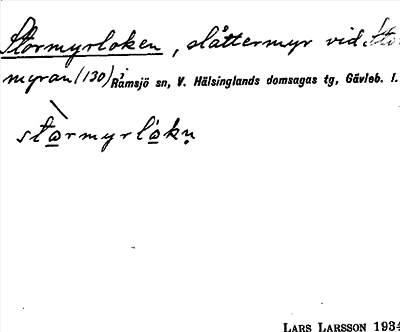 Stormyrloken, slåttermyr vid Sto
myran (130) Ramsjö sn, V. Hälsinglands domsagas tg, Gävleb. l.
sta̲rmyrlå̲kṇ
LARS LARSSON 1934